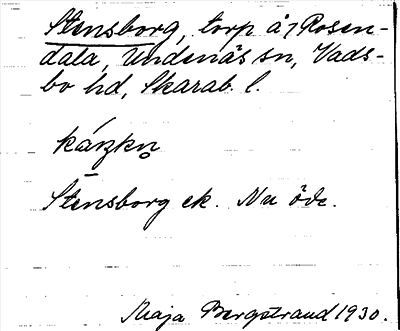 Stensborg, torp å 1 Rosen-
dala, Undenäs sn, Vads-
bo hd, Skarab. l.
Stensborg ek. Nu öde.
Maja Bergstrand 1930.